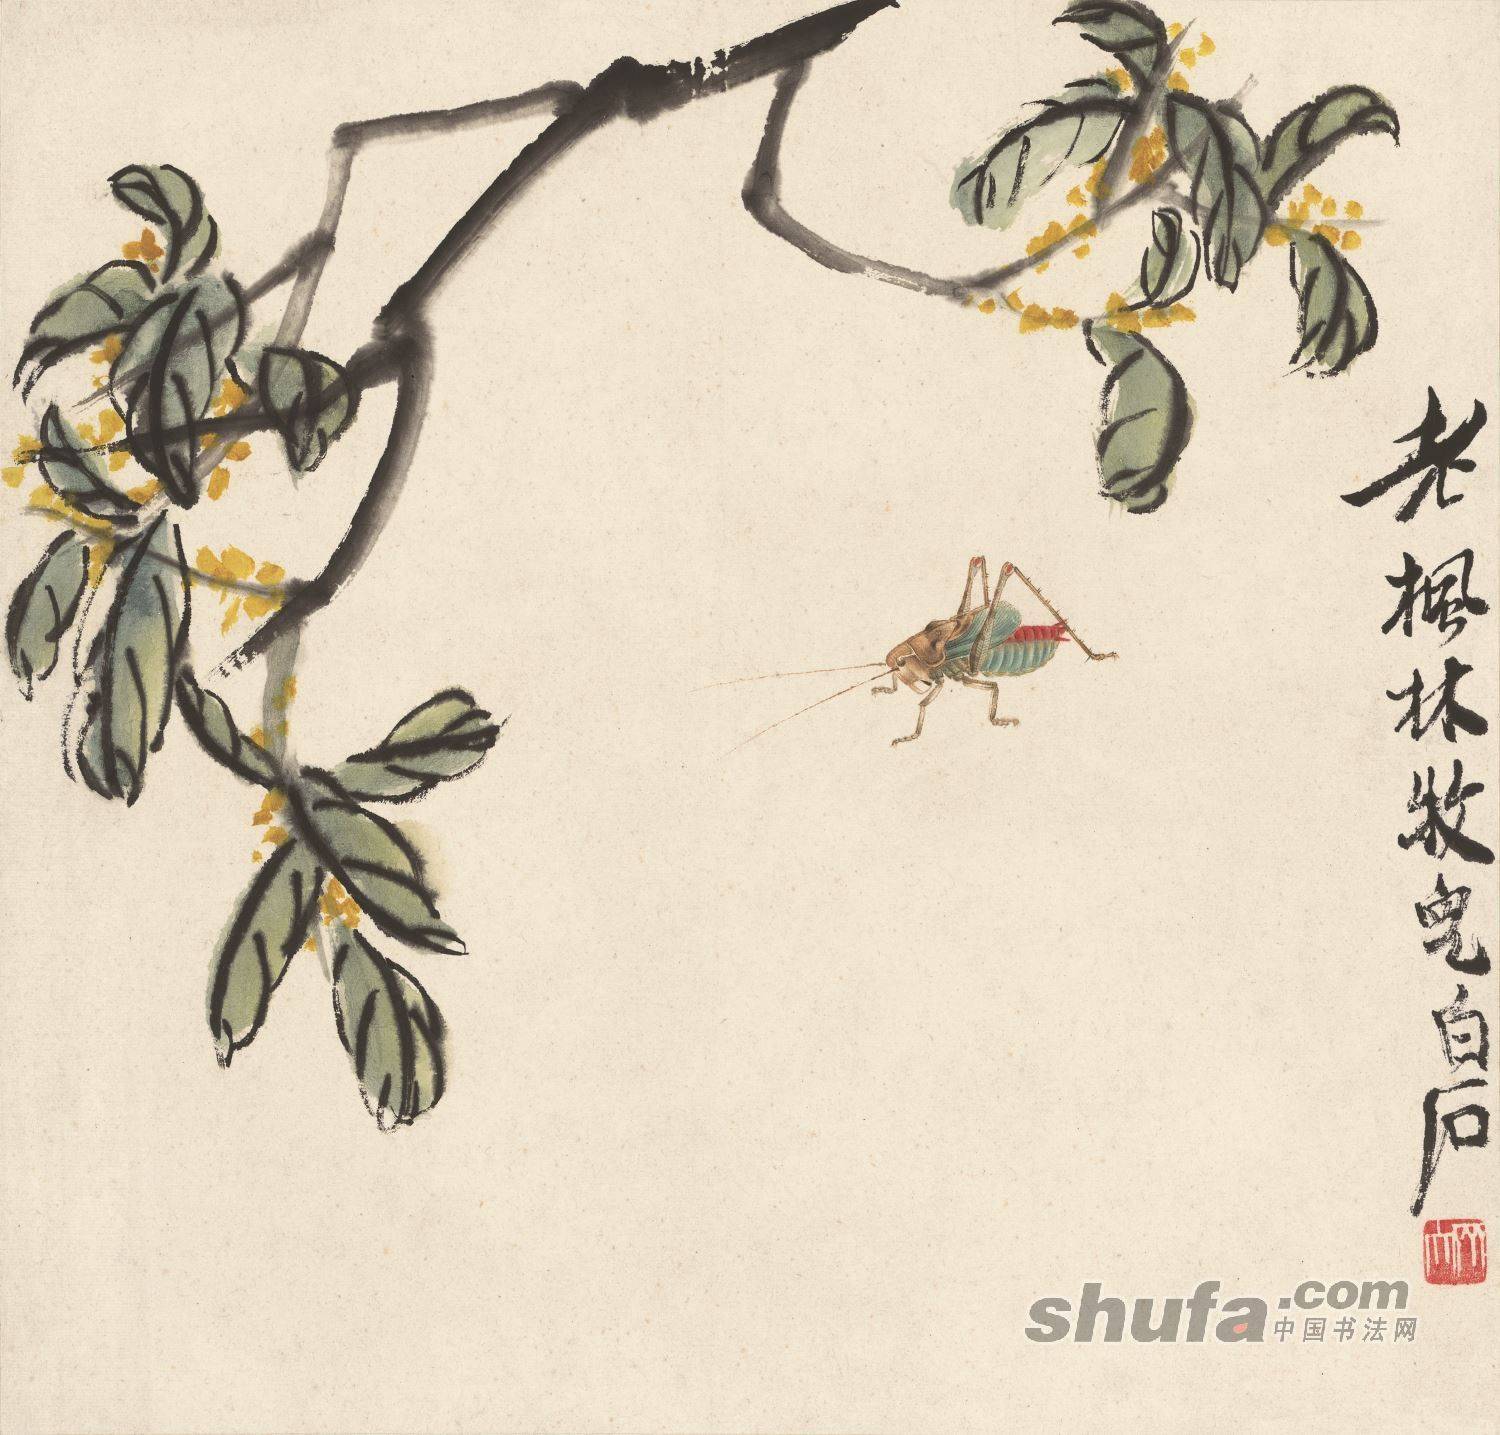 老枫林牧皃白石
shufa.com
中国书法网